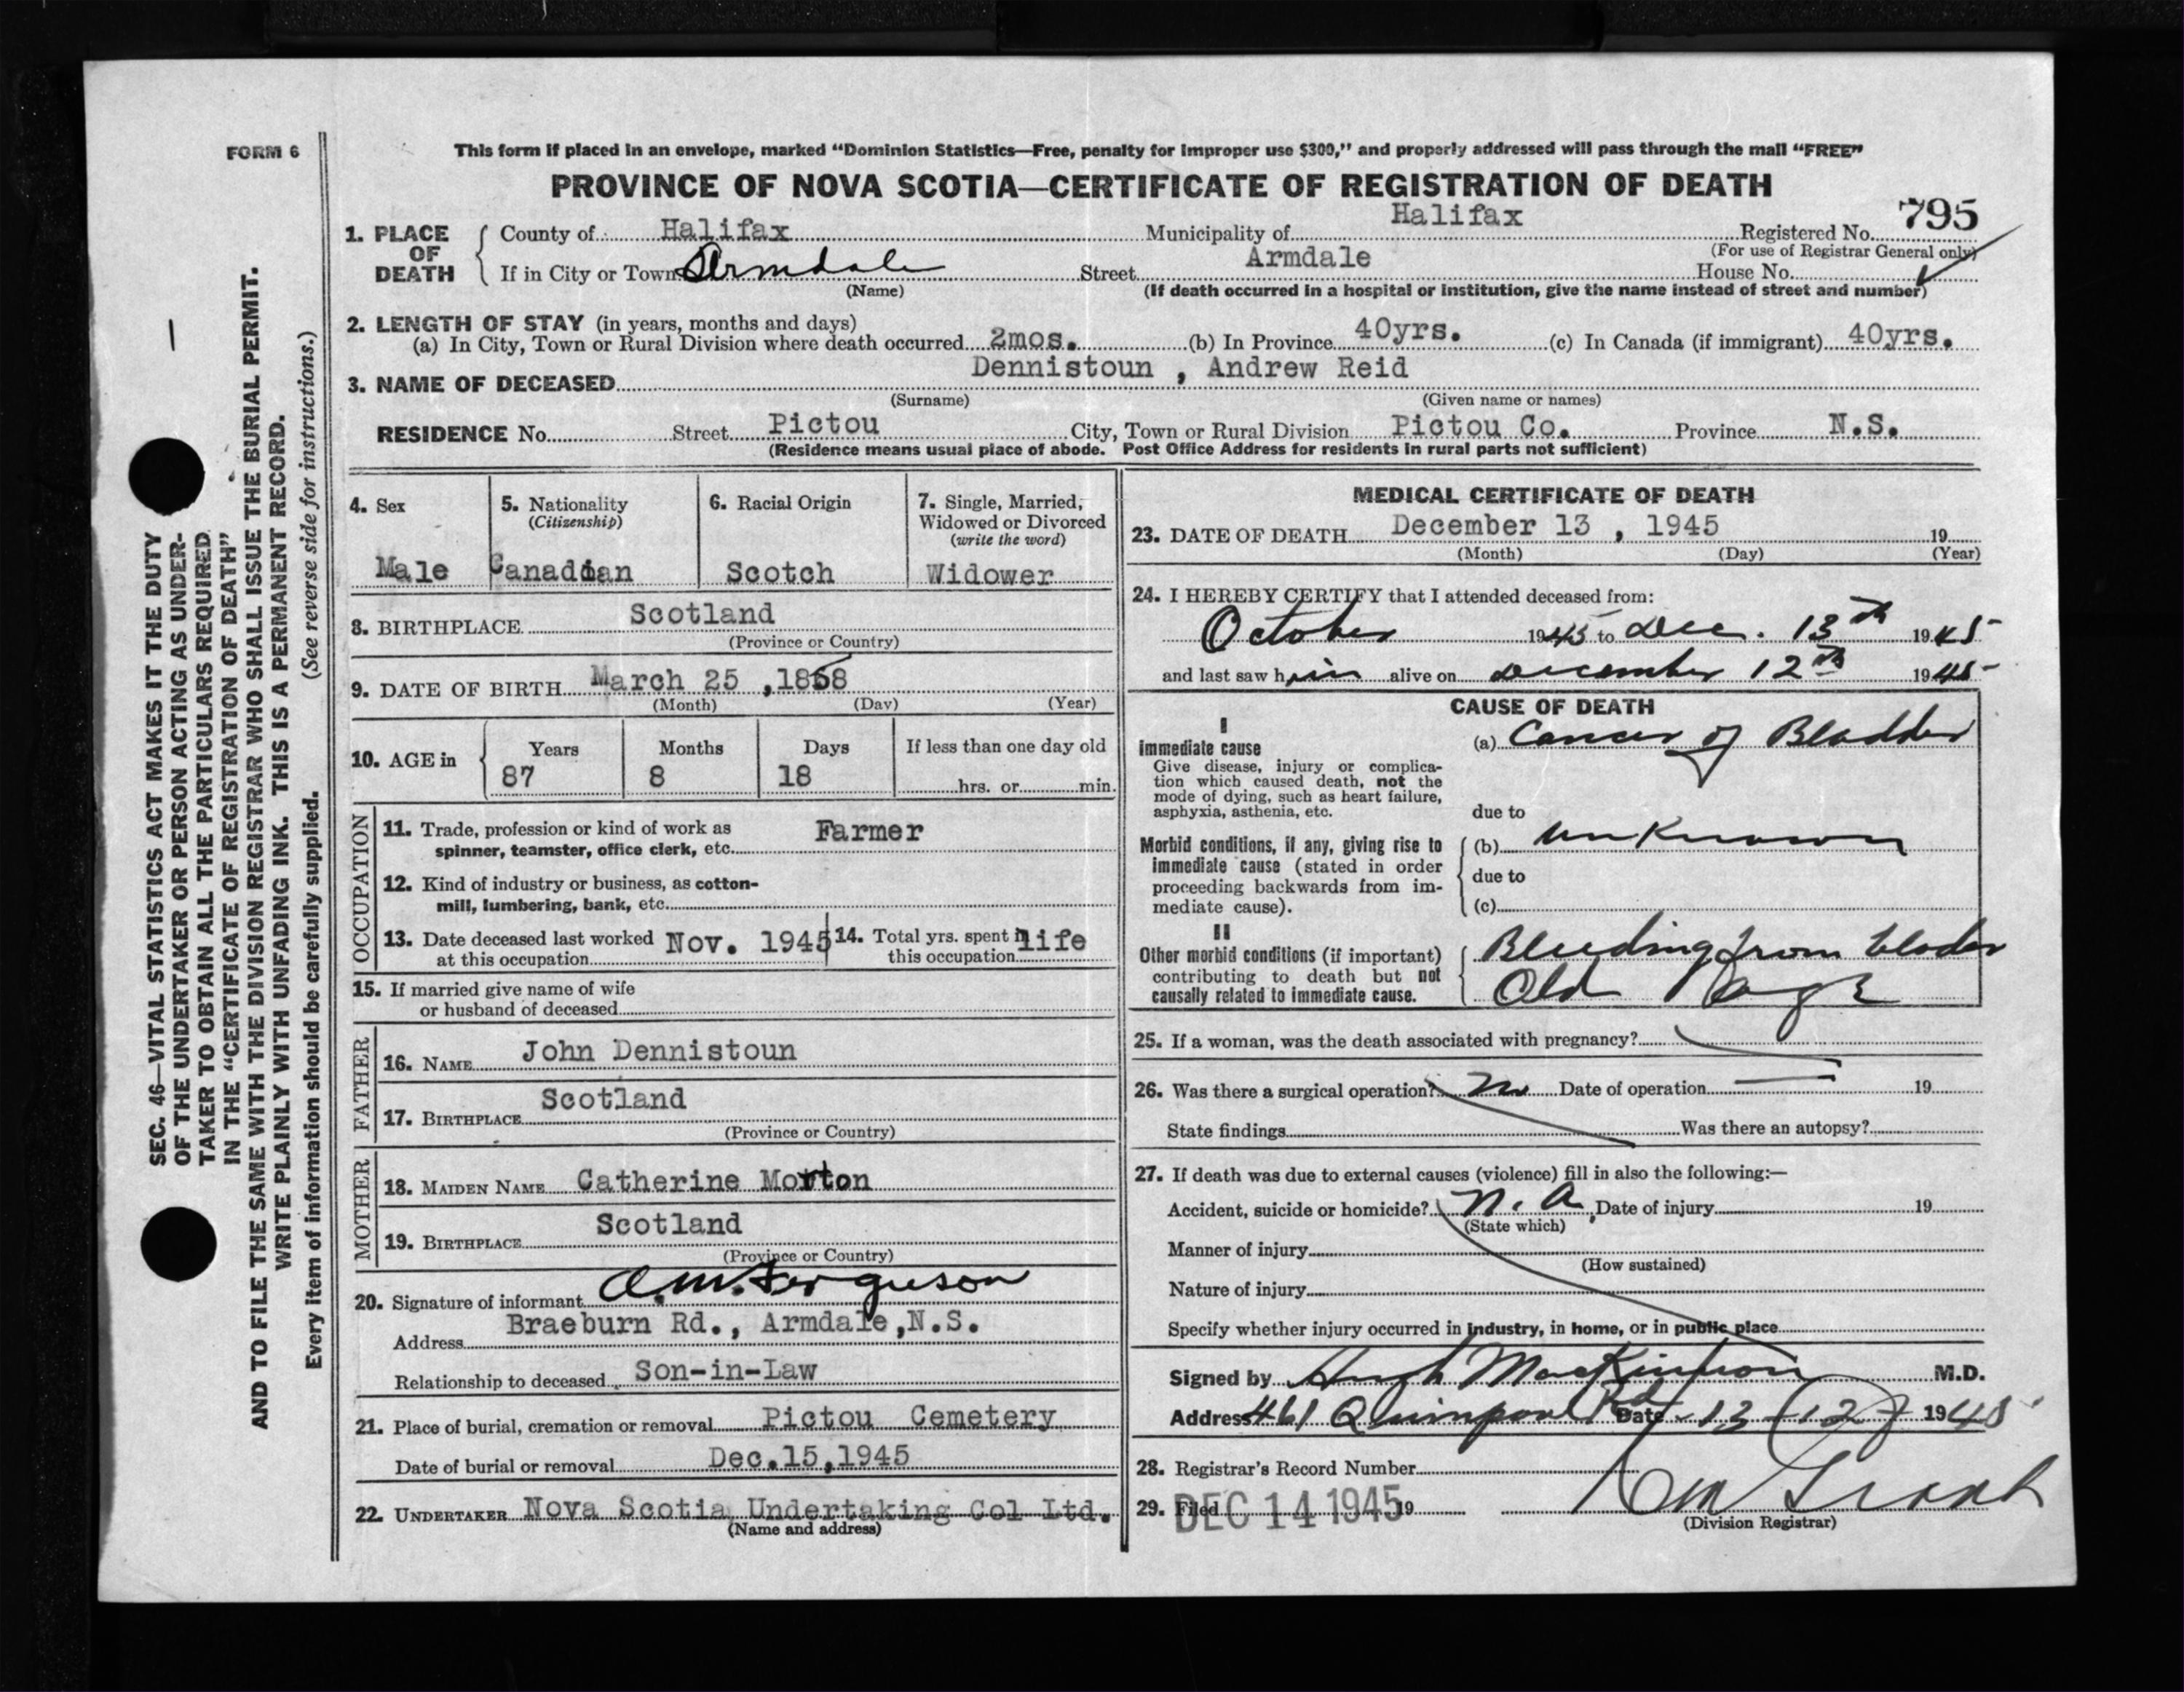 FORM 6
This form if placed in an envelope, marked "Dominion Statistics—Free, penalty for improper use $300," and properly addressed will pass through the mail "FREE"
PROVINCE OF NOVA SCOTIA—CERTIFICATE OF REGISTRATION OF DEATH
1. PLACE OF DEATH
County of Halifax Municipality of Halifax Registered No. 795
(For use of Registrar General only)
If in City or Town Armdale Street Armdale House No.
(Name) (If death occurred in a hospital or institution, give the name instead of street and number)
2. LENGTH OF STAY (in years, months and days)
(a) In City, Town or Rural Division where death occurred 2mos. (b) In Province 40yrs. (c) In Canada (if immigrant) 40yrs.
3. NAME OF DECEASED Dennistoun , Andrew Reid
(Surname) (Given name or names)
RESIDENCE No. Street Pictou City, Town or Rural Division Pictou Co. Province N.S.
(Residence means usual place of abode. Post Office Address for residents in rural parts not sufficient)
4. Sex
Male
5. Nationality
(Citizenship)
Canadian
6. Racial Origin
Scotch
7. Single, Married,
Widowed or Divorced
(write the word)
Widower
8. BIRTHPLACE Scotland
(Province or Country)
9. DATE OF BIRTH March 25 ,1858
(Month) (Day) (Year)
10. AGE in
Years Months Days If less than one day old
87 8 18 hrs. or min.
OCCUPATION
11. Trade, profession or kind of work as
spinner, teamster, office clerk, etc. Farmer
12. Kind of industry or business, as cotton-
mill, lumbering, bank, etc.
13. Date deceased last worked
at this occupation Nov. 1945
14. Total yrs. spent in
this occupation life
15. If married give name of wife
or husband of deceased
FATHER
16. NAME John Dennistoun
17. BIRTHPLACE Scotland
(Province or Country)
MOTHER
18. MAIDEN NAME Catherine Morton
19. BIRTHPLACE Scotland
(Province or Country)
20. Signature of informant A.M. Ferguson
Address Braeburn Rd., Armdale,N.S.
Relationship to deceased Son-in-Law
21. Place of burial, cremation or removal Pictou Cemetery
Date of burial or removal Dec.15,1945
22. UNDERTAKER Nova Scotia Undertaking Col Ltd.
(Name and address)
MEDICAL CERTIFICATE OF DEATH
23. DATE OF DEATH December 13 , 1945 19
(Month) (Day) (Year)
24. I HEREBY CERTIFY that I attended deceased from:
October 1945 to Dec. 13th 1945
and last saw him alive on December 12th 1945
CAUSE OF DEATH
I
Immediate cause
Give disease, injury or complica-
tion which caused death, not the
mode of dying, such as heart failure,
asphyxia, asthenia, etc.
(a) Cancer of Bladder
due to
Morbid conditions, if any, giving rise to
immediate cause (stated in order
proceeding backwards from im-
mediate cause).
(b) unknown
due to
(c)
II
Other morbid conditions (if important)
contributing to death but not
causally related to immediate cause.
Bleeding from blader
Old age
25. If a woman, was the death associated with pregnancy?
26. Was there a surgical operation? no Date of operation 19
State findings Was there an autopsy?
27. If death was due to external causes (violence) fill in also the following:—
Accident, suicide or homicide? n. a. Date of injury 19
(State which)
Manner of injury
(How sustained)
Nature of injury
Specify whether injury occurred in industry, in home, or in public place
Signed by Hugh MacKinnon M.D.
Address 461 Quinpool Rd Date 13 - 12 1945
28. Registrar's Record Number
29. Filed DEC 14 1945 19
(Division Registrar)
SEC. 46—VITAL STATISTICS ACT MAKES IT THE DUTY
OF THE UNDERTAKER OR PERSON ACTING AS UNDER-
TAKER TO OBTAIN ALL THE PARTICULARS REQUIRED
IN THE "CERTIFICATE OF REGISTRATION OF DEATH"
AND TO FILE THE SAME WITH THE DIVISION REGISTRAR WHO SHALL ISSUE THE BURIAL PERMIT.
WRITE PLAINLY WITH UNFADING INK. THIS IS A PERMANENT RECORD.
Every item of information should be carefully supplied. (See reverse side for instructions.)